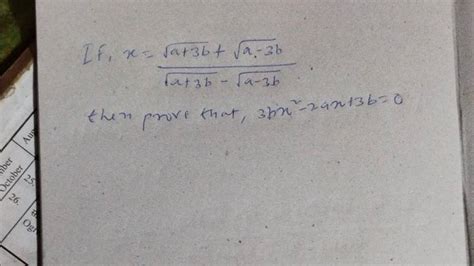 If, x = √(a+3b) + √(a-3b)
√(a+3b) - √(a-3b)
then prove that, 3bx² - 2ax + 3b = 0
October